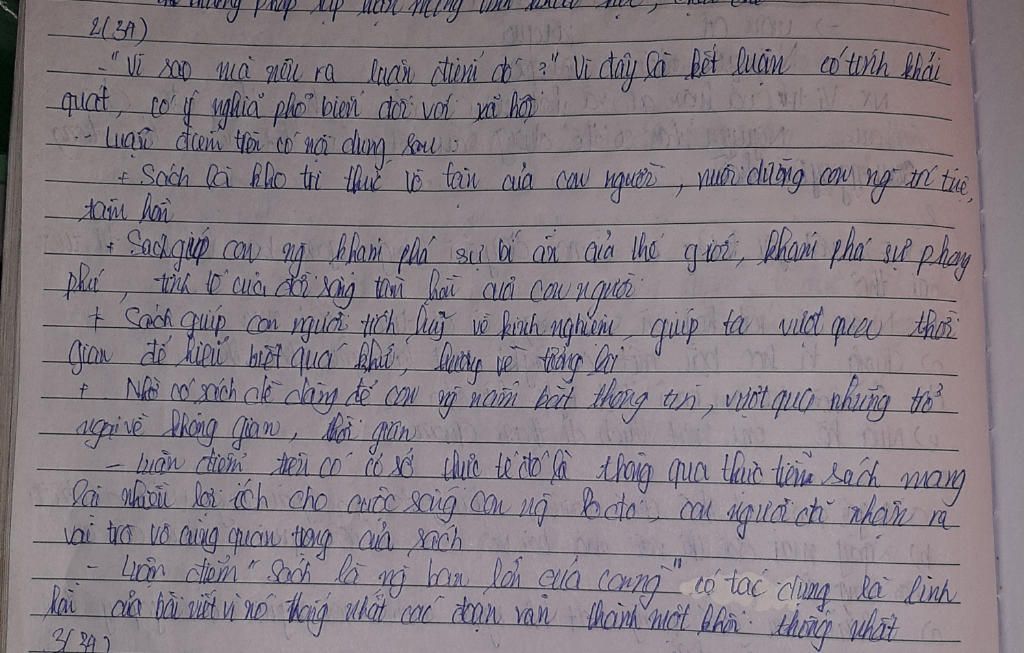 2(3A)
- "Vì sao mà nêu ra luận điểm đó?" Vì đây là kết luận có tính khái
quát, có ý nghĩa phổ biến đối với xã hội
- Luận điểm trên có nội dung sau:
+ Sách là kho tri thức vô tận của con người, nuôi dưỡng con ng trí tuệ,
tâm hồn
+ Sách giúp con ng khám phá sự bí ẩn của thế giới, khám phá sự phong
phú, tinh tế của đời sống tâm hồn của con người
+ Sách giúp con người tích luỹ về kinh nghiệm, giúp ta vượt qua thời
gian để hiểu biết quá khứ, hướng về tương lai
+ Nhờ có sách dễ dàng để con ng nắm bắt thông tin, vượt qua những trở
ngại về không gian, thời gian
- Luận điểm trên có cơ sở thực tế đó là thông qua thực tiễn sách mang
lại nhiều lợi ích cho cuộc sống con ng con người chỉ nhận ra
vai trò vô cùng quan trọng của sách
- Luận điểm "sách là ng bạn lớn của con ng" có tác dụng là linh
hồn của bài viết vì nó thống nhất các đoạn văn thành một khối thống nhất
3(3A)